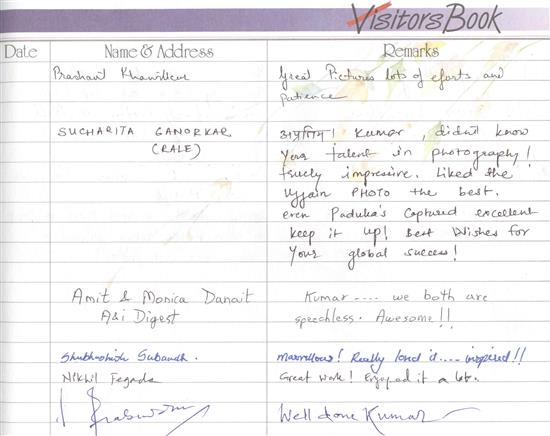 Visitors Book
Date Name & Address Remarks
Prashant Great Pictures lots of eforts and
patience
SUCHARITA GANORKAR अप्रतिम! Kumar, didn't know
(RALE) Your talent in photography!
truely impressive. Liked the
Ujjain PHOTO the best.
even Paduka's Captured excellent
keep it up! Best Wishes for
Your global success!
Amit & Monica Danait Kumar .... we both are
A&i Digest speechless. Awesome!!
Shubhashish Subandh. marvellous! Really loved it.... inspired!!
Nikhil Fegade Great work! Enjoyed it a lot.
Well done Kumar